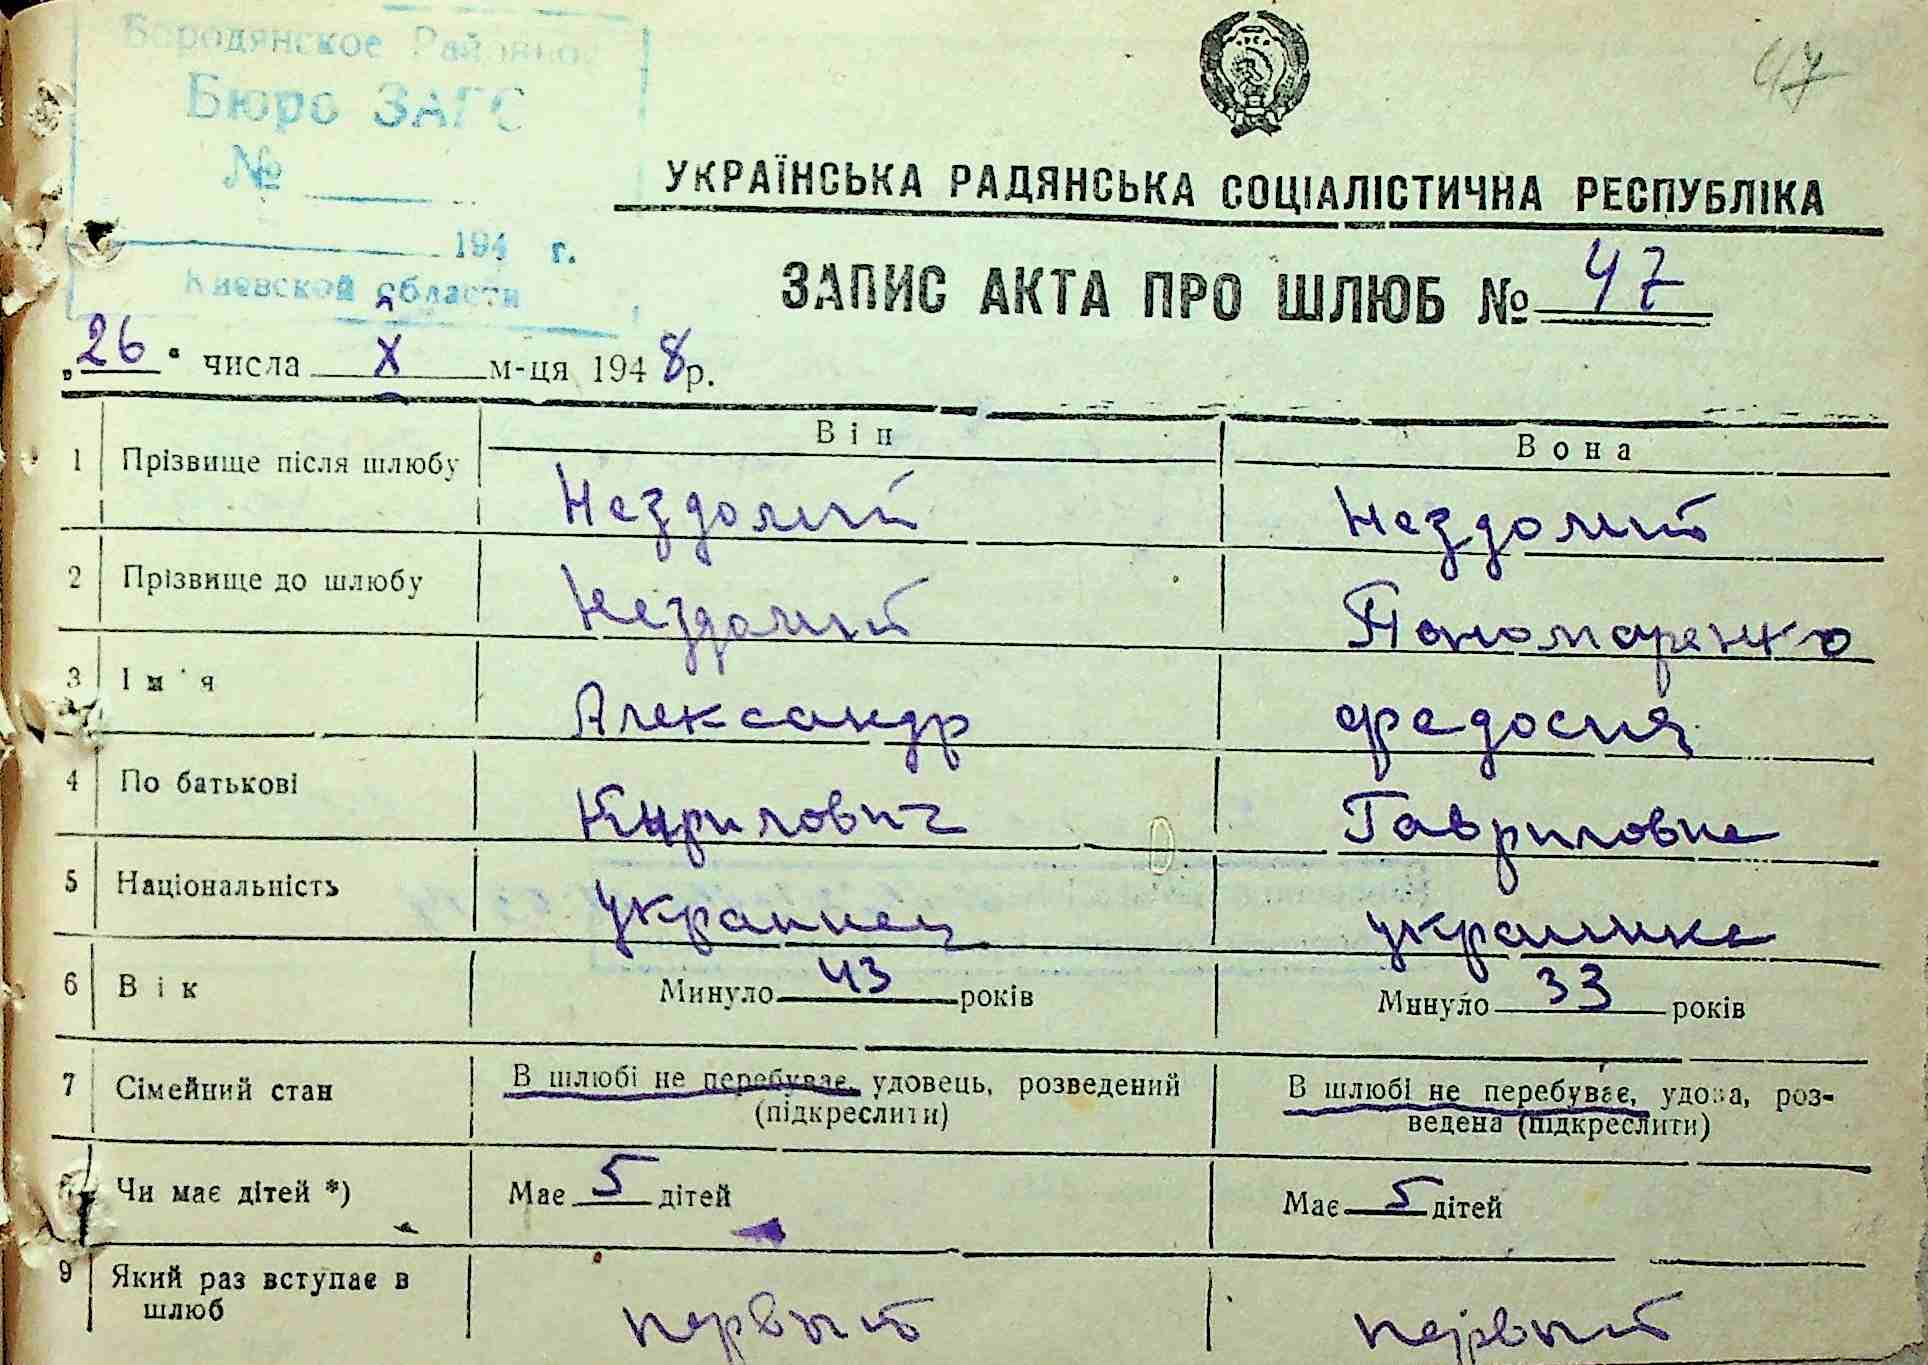 Бородянское Районное
Бюро ЗАГС
№
194 г.
Киевской области
47
УКРАЇНСЬКА РАДЯНСЬКА СОЦІАЛІСТИЧНА РЕСПУБЛІКА
ЗАПИС АКТА ПРО ШЛЮБ № 47
„26“ числа X м-ця 1948 р.
Він Вона
1 Прізвище після шлюбу Нездолий Нездолий
2 Прізвище до шлюбу Нездолий Пономаренко
3 Ім'я Александр Федосия
4 По батькові Кирилович Гавриловна
5 Національність украинец украинка
6 Вік Минуло 43 років Минуло 33 років
7 Сімейний стан В шлюбі не перебуває, удовець, розведений (підкреслити) В шлюбі не перебуває, удова, роз-
ведена (підкреслити)
8 Чи має дітей *) Має 5 дітей Має 5 дітей
9 Який раз вступає в
шлюб первый первый